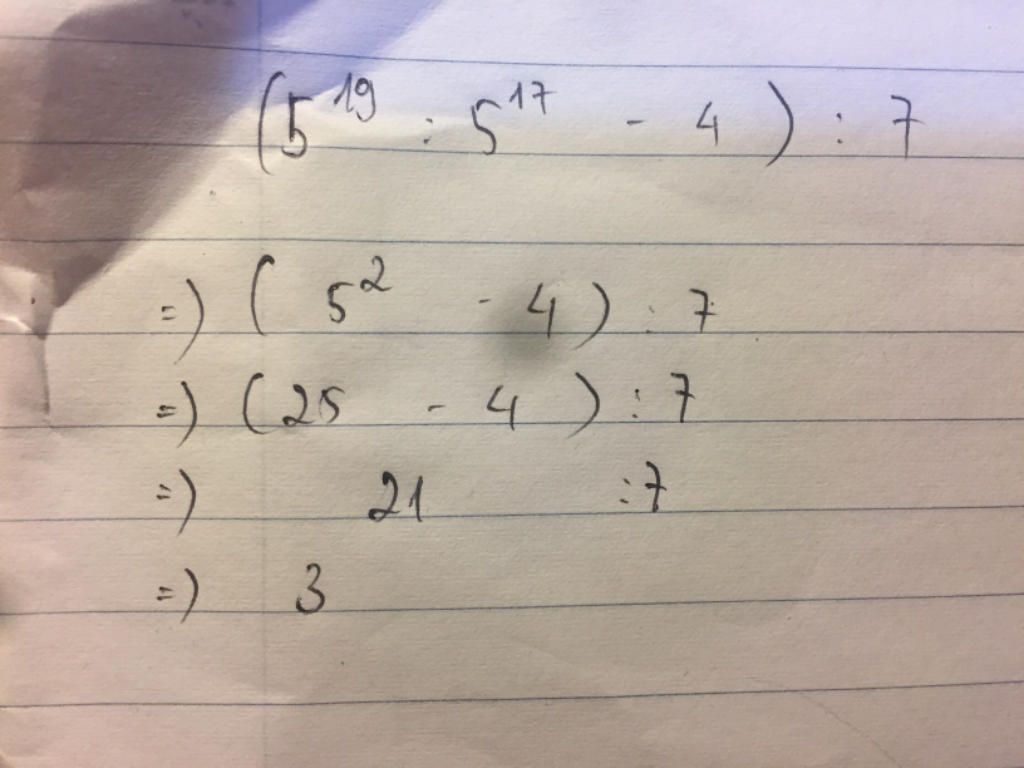 (5¹⁹ : 5¹⁷ - 4) : 7
=) (5² - 4) : 7
=) (25 - 4) : 7
=) 21 : 7
=) 3